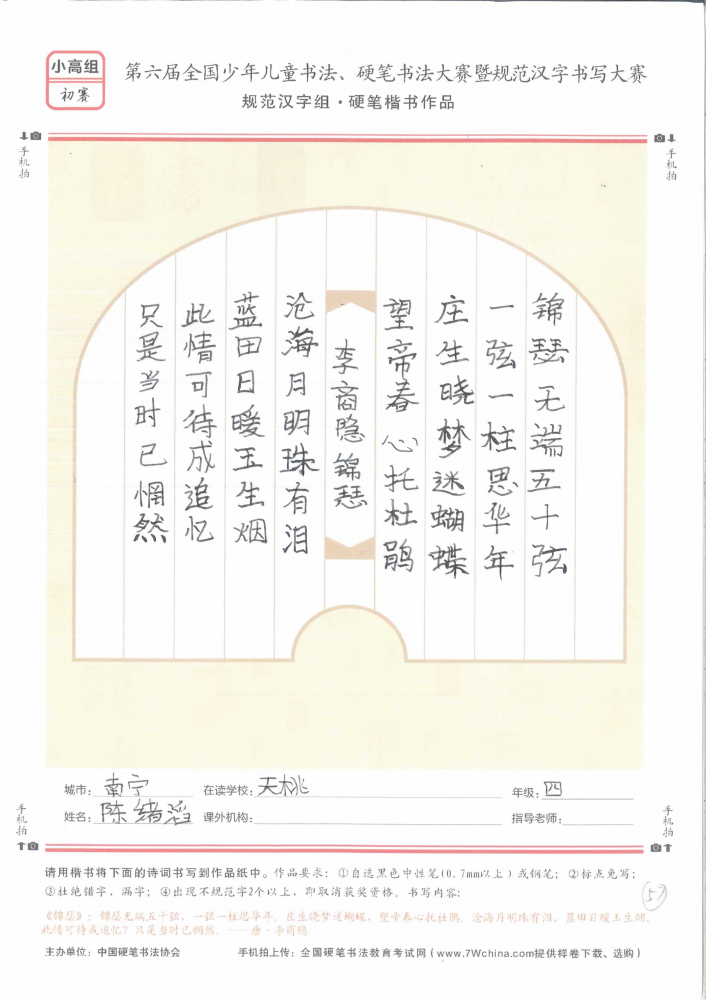 小高组
初赛
第六届全国少年儿童书法、硬笔书法大赛暨规范汉字书写大赛
规范汉字组·硬笔楷书作品
手机拍
手机拍
锦瑟无端五十弦
一弦一柱思华年
庄生晓梦迷蝴蝶
望帝春心托杜鹃
李商隐锦瑟
沧海月明珠有泪
蓝田日暖玉生烟
此情可待成追忆
只是当时已惘然
城市：南宁 在读学校：天桃 年级：四
姓名：陈绪滔 课外机构： 指导老师：
手机拍
手机拍
请用楷书将下面的诗词书写到作品纸中。作品要求：①自选黑色中性笔(0.7mm以上)或钢笔；②标点免写；
③杜绝错字、漏字；④出现不规范字2个以上，即取消获奖资格。书写内容：
57
《锦瑟》：锦瑟无端五十弦，一弦一柱思华年。庄生晓梦迷蝴蝶，望帝春心托杜鹃。沧海月明珠有泪，蓝田日暖玉生烟。
此情可待成追忆？只是当时已惘然。——唐·李商隐
主办单位：中国硬笔书法协会 手机拍上传：全国硬笔书法教育考试网（www.7Wchina.com提供样卷下载、选购）